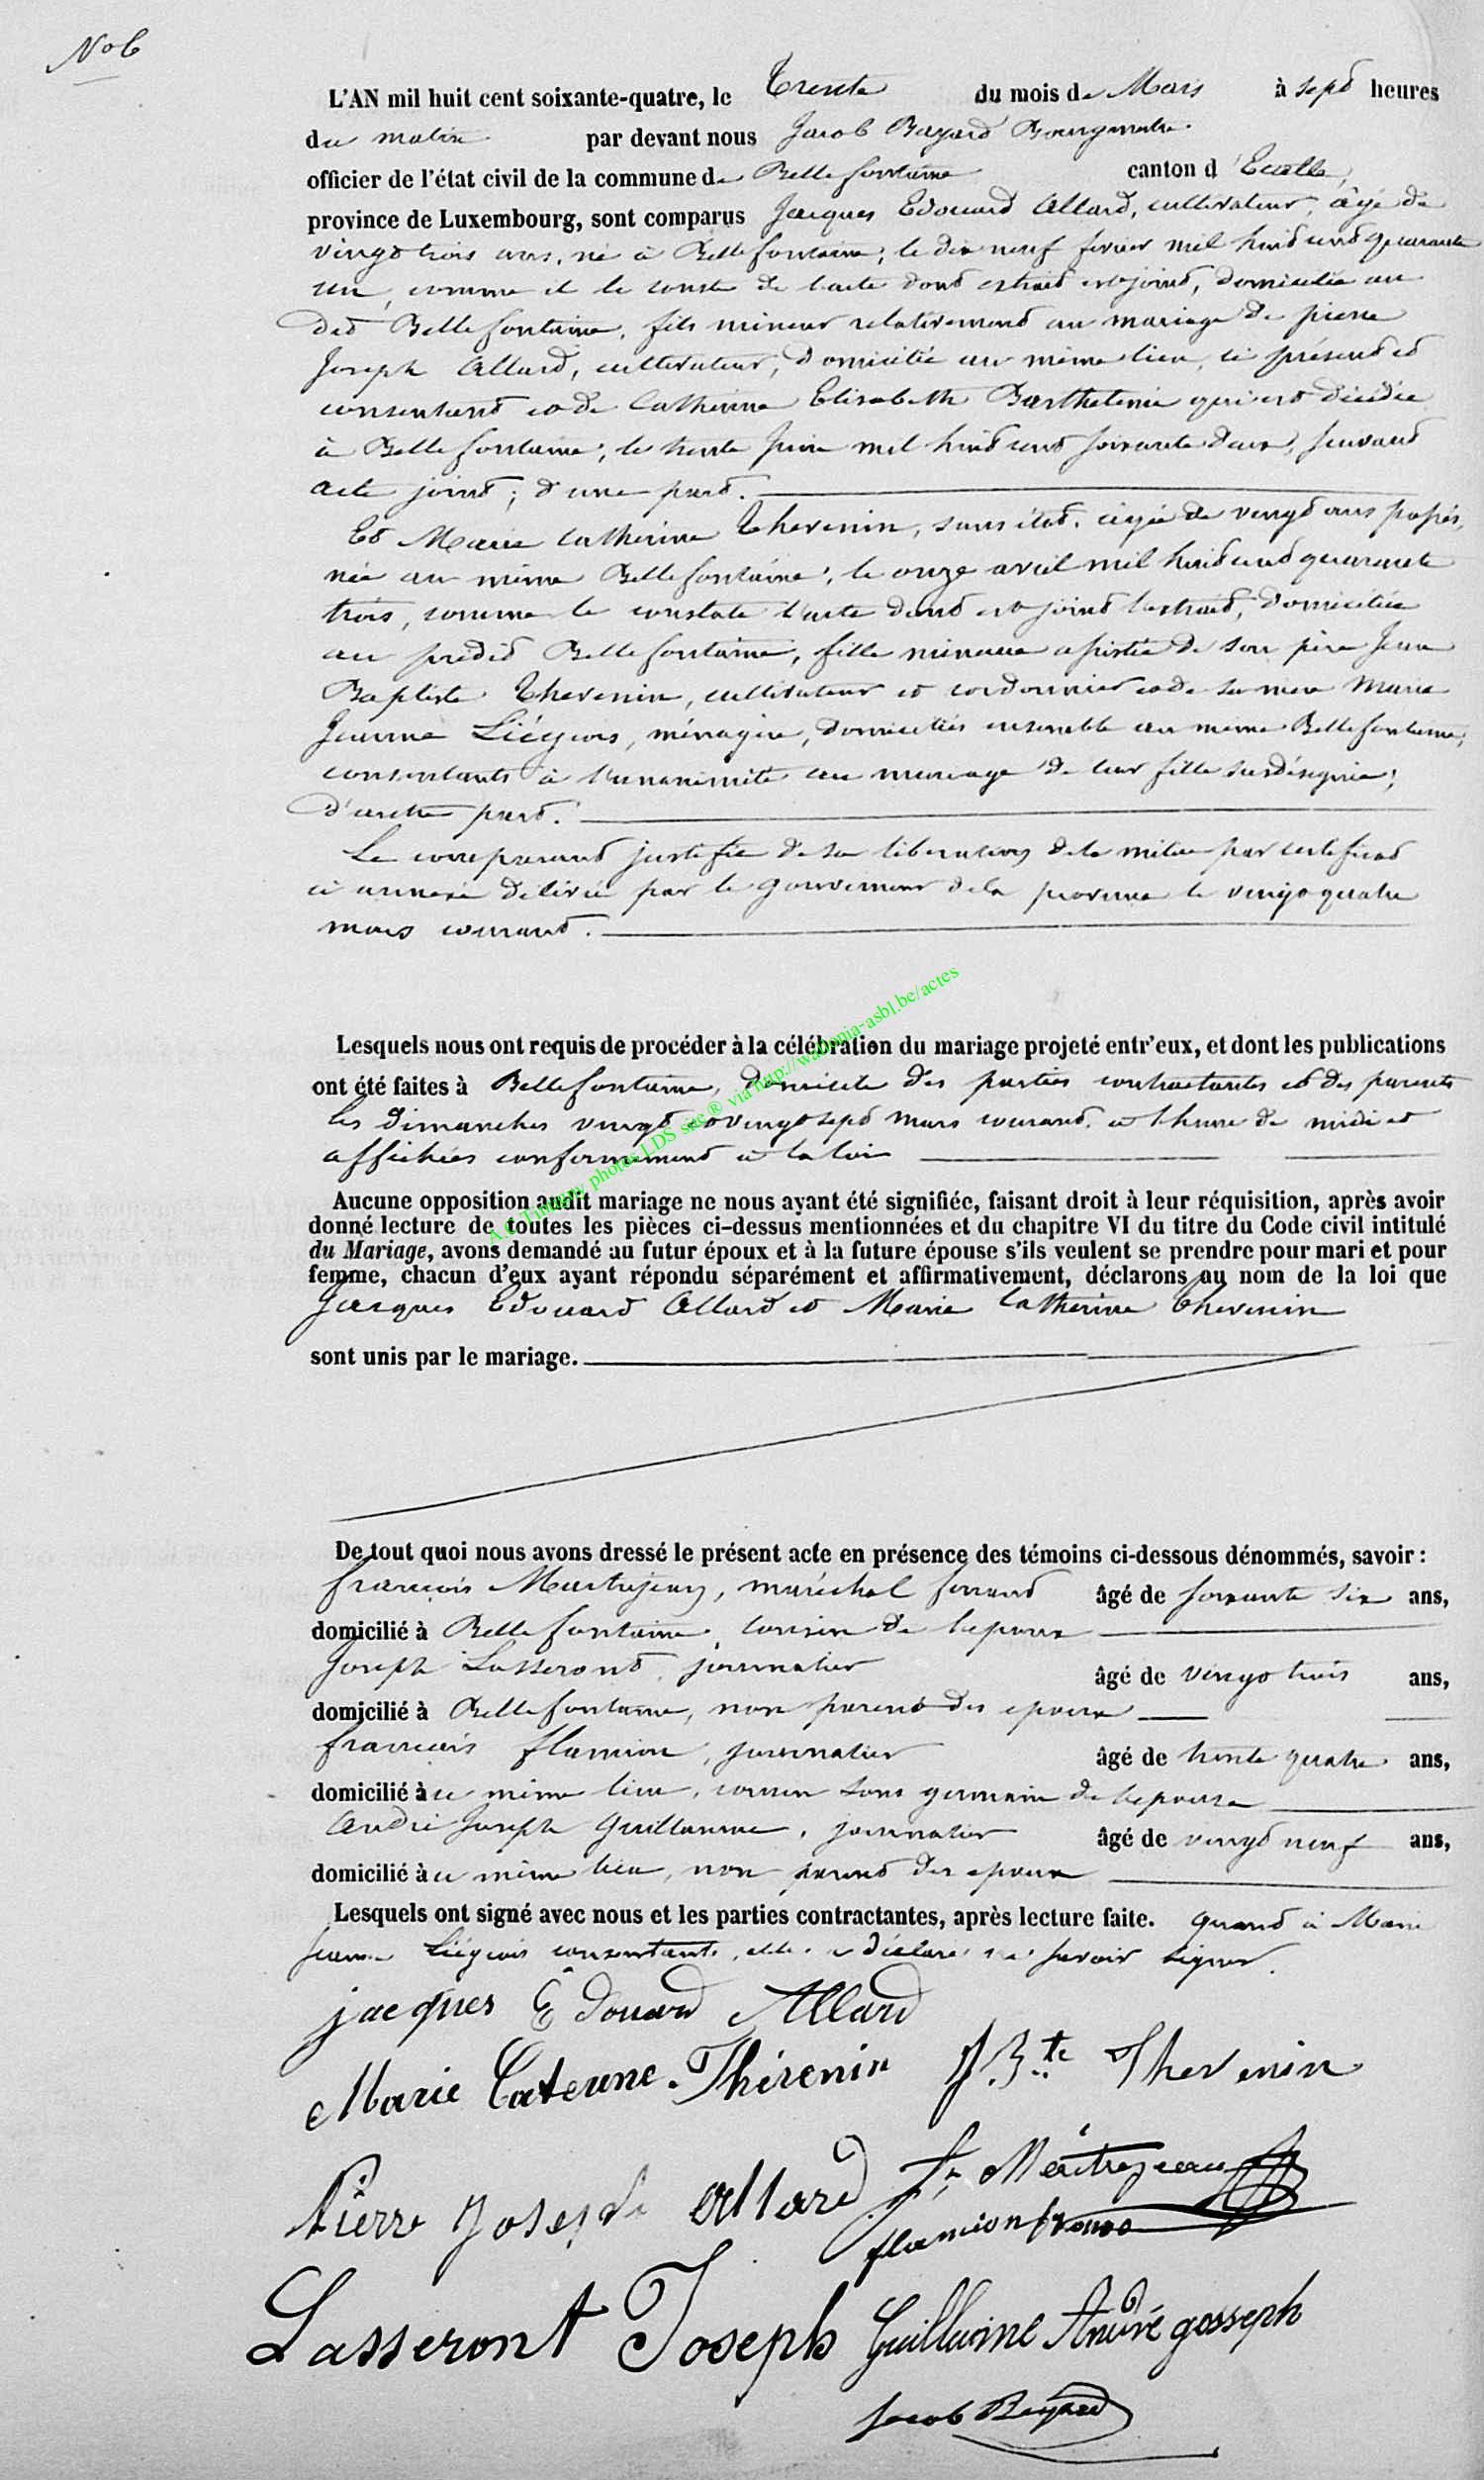 No 6
L'AN mil huit cent soixante-quatre, le Trente du mois de Mars à sept heures
du matin par devant nous Jacob Bayard Bourgmestre
officier de l'état civil de la commune de Bellefontaine canton d'Etalle,
province de Luxembourg, sont comparus Jacques Edouard Allard, cultivateur, âgé de
vingt trois ans, né à Bellefontaine, le dix neuf fevrier mil huit cent quarante
un, comme il le conste de l'acte dont extrait est joint, domicilié au
dit Bellefontaine, fils mineur relativement au mariage de pierre
Joseph Allard, cultivateur, domicilié au même lieu, ci présent et
consentant et de Catherine Elisabeth Barthelemi qui est décédée
à Bellefontaine, le trente Juin mil huit cent soixante deux, suivant
acte joint; d'une part.
Et Marie Catherine Thevenin, sans état, âgée de vingt ans passés,
née au même Bellefontaine, le onze avril mil huit cent quarante
trois, comme le constate l'acte dont est joint l'extrait, domiciliée
au prédit Bellefontaine, fille mineure assistée de son père Jean
Baptiste Thevenin, cultivateur et cordonnier et de sa mère Marie
Jeanne Liégeois, ménagère, domiciliés ensemble au même Bellefontaine,
consentants à l'unanimité au mariage de leur fille susdésignée;
d'autre part.
Le comparant justifie de sa liberation de la milice par certificat
ci annexé délivré par le gouverneur de la province le vingt quatre
mars courant.
Lesquels nous ont requis de procéder à la célébration du mariage projeté entr'eux, et dont les publications
ont été faites à Bellefontaine, domicile des parties contractantes et des parents
les dimanches vingt et vingt sept mars courant, à l'heure de midi et
affichées conformément à la loi
A.C. Tintigny photos LDS site ® via http://wallonia-asbl.be/actes
Aucune opposition audit mariage ne nous ayant été signifiée, faisant droit à leur réquisition, après avoir
donné lecture de toutes les pièces ci-dessus mentionnées et du chapitre VI du titre du Code civil intitulé
du Mariage, avons demandé au futur époux et à la future épouse s'ils veulent se prendre pour mari et pour
femme, chacun d'eux ayant répondu séparément et affirmativement, déclarons au nom de la loi que
Jacques Edouard Allard et Marie Catherine Thevenin
sont unis par le mariage.
De tout quoi nous avons dressé le présent acte en présence des témoins ci-dessous dénommés, savoir :
françois Maitrejean, maréchal ferrant âgé de soixante six ans,
domicilié à Bellefontaine, cousin de l'epoux
Joseph Lasseront, journalier âgé de vingt trois ans,
domicilié à Bellefontaine, non parent des epoux
francois flamion, journalier âgé de trente quatre ans,
domicilié à ce même lieu, cousin sous germain de l'epouse
André Joseph Guillaume, journalier âgé de vingt neuf ans,
domicilié à ce même lieu, non parent des epoux
Lesquels ont signé avec nous et les parties contractantes, après lecture faite. quand à Marie
Jeanne Liégeois consentante, elle a déclaré ne savoir signer.
jacques Edouard Allard
Marie Caterine Thévenin J. Bte Thevenin
Pierre Joseph Allard fr Maitrejean
flamion
Lasseront Joseph Guillaume André gosseph
Jacob Bayard